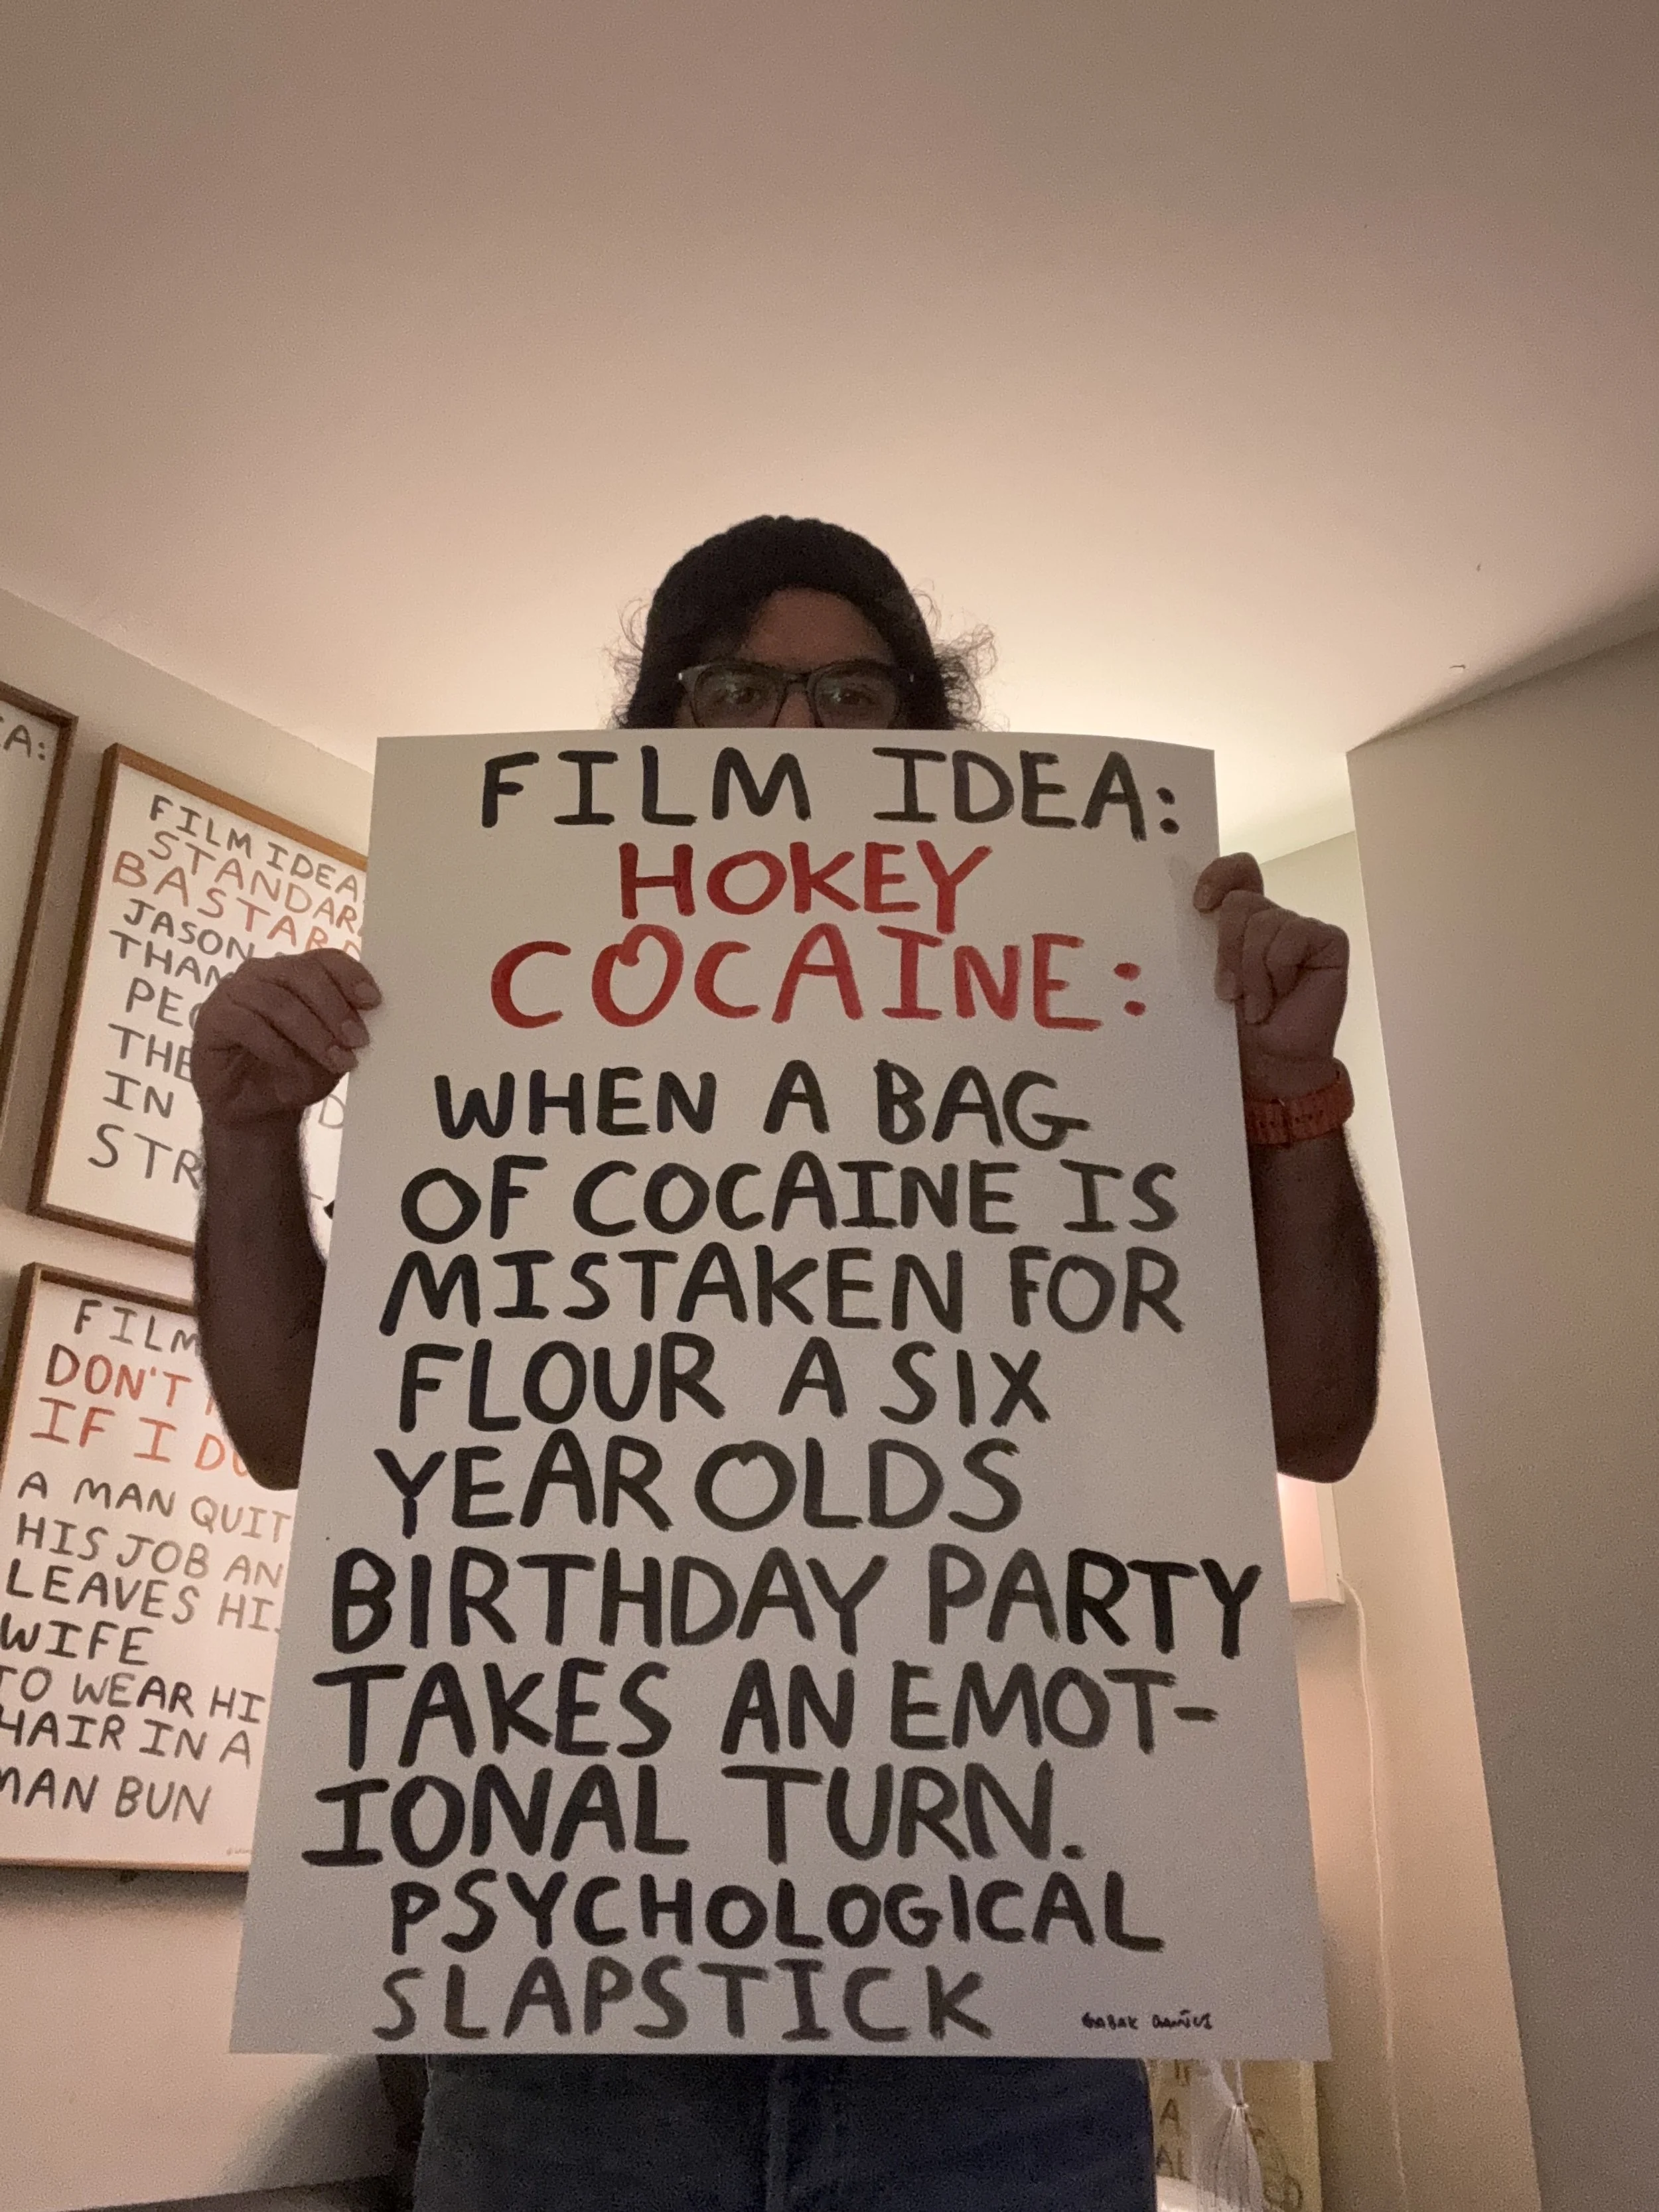 FILM IDEA:
HOKEY
COCAINE:
WHEN A BAG
OF COCAINE IS
MISTAKEN FOR
FLOUR A SIX
YEAR OLDS
BIRTHDAY PARTY
TAKES AN EMOT-
IONAL TURN.
PSYCHOLOGICAL
SLAPSTICK
A:
FILM IDEA
JASON
IN
FILM
DON'T
IF I
A MAN QUIT
HIS JOB AN
LEAVES HI
WIFE
TO WEAR HI
HAIR IN A
MAN BUN